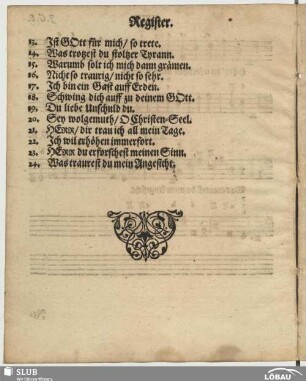 Register.
13. Ist GOtt für mich/ so trete.
14. Was trotzest du stoltzer Tyrann.
15. Warumb solt ich mich dann grämen.
16. Nicht so traurig/ nicht so sehr.
17. Ich bin ein Gast auff Erden.
18. Schwing dich auff zu deinem GOtt.
19. Du liebe Unschuld du.
20. Sey wolgemuth/ O Christen-Seel.
21. HErr/ dir trau ich all mein Tage.
22. Ich wil erhöhen immerfort.
23. HErr du erforschest meinen Sinn.
24. Was traurest du mein Angesicht.
SLUB
Wir führen Wissen.
LÖBAU